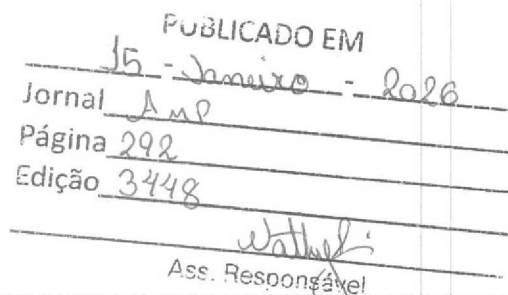 PUBLICADO EM
15 - Janeiro - 2026
Jornal AMP
Página 292
Edição 3448
Ass. Responsável